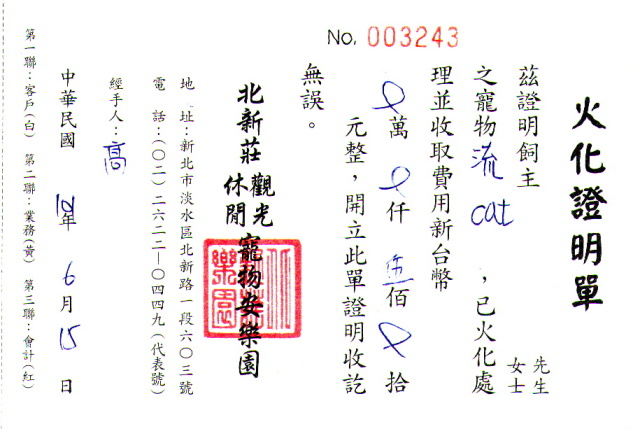 No. 003243
火化證明單
茲證明飼主 先生 女士
之寵物流 cat ,已火化處
理並收取費用新台幣
0萬0仟伍佰0拾
元整,開立此單證明收訖
無誤。
北新莊觀光休閒寵物安樂園
地 址:新北市淡水區北新路一段六〇三號
電 話:(〇二)二六二二—〇四四九(代表號)
經手人:高
中華民國 年 6 月 15 日
第一聯:客戶(白) 第二聯:業務(黃) 第三聯:會計(紅)